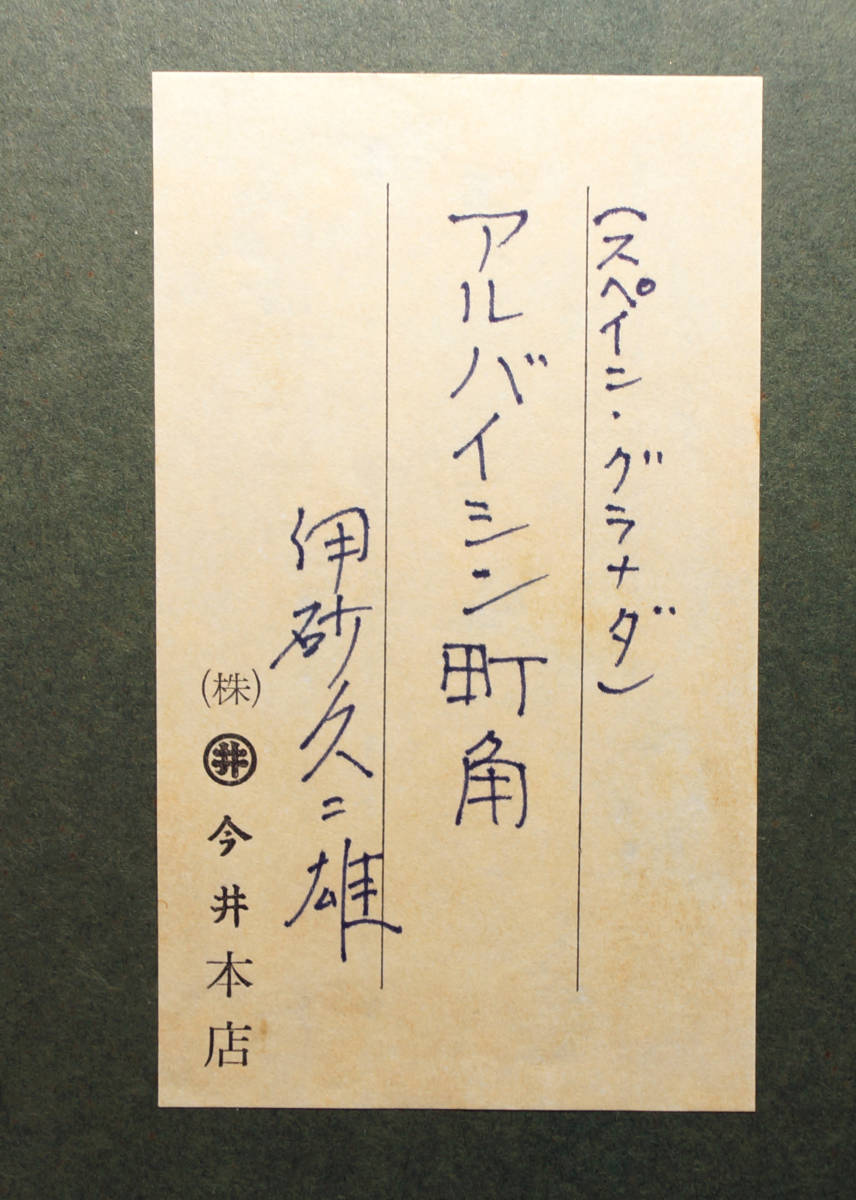 (スペイン・グラナダ)
アルバイシン町角
伊砂久二雄
(株)井今井本店